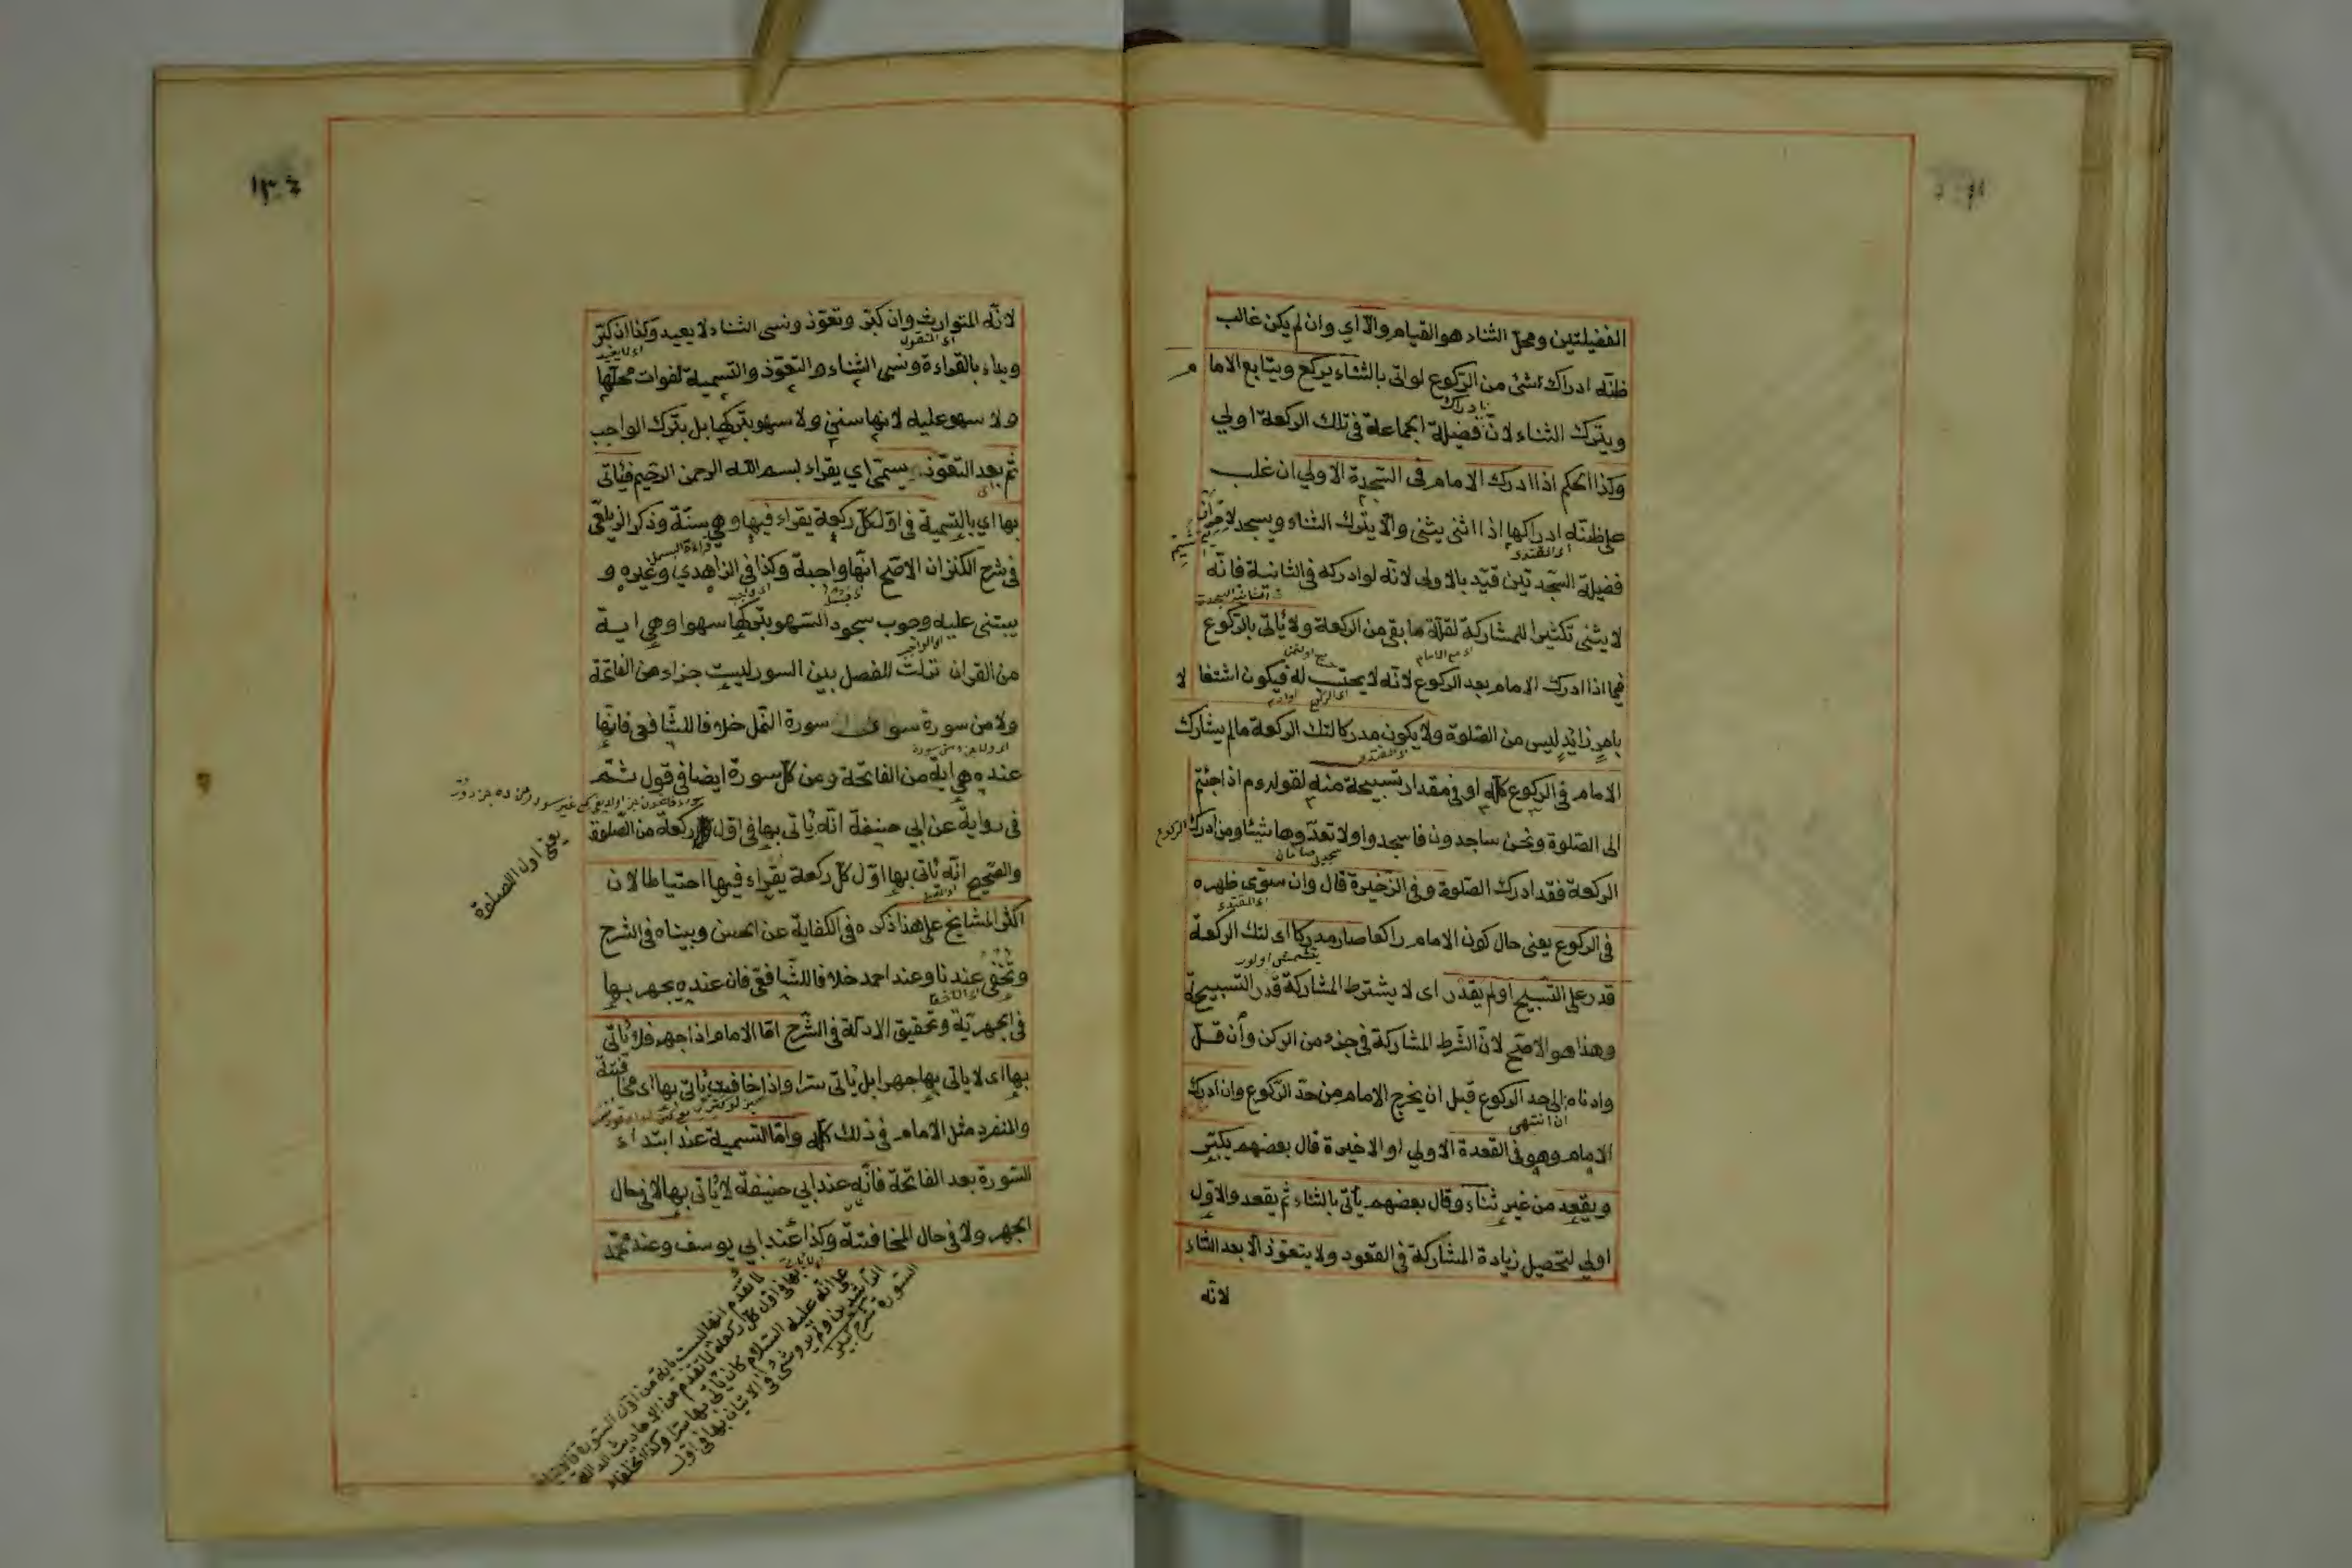 الفضيلتين ومحل الثناء هو القيام والا اي وان لم يكن غالب
ظنه ادراك شئ من الركوع لو اتى بالثناء يركع ويتابع الامام
ويترك الثناء لان فضيلة الجماعة في تلك الركعة اولي
وكذا الحكم اذا ادرك الامام في السجدة الاولي ان غلب
على ظنه ادراكها اذا اثنى يثنى والا يترك الثناء ويسجد
فضيلة السجدتين قيد بالاولى لانه لو ادركه في الثانية فانه
لا يثنى تكثيرا للمشاركة لقلة ما بقى من الركعة ولا يأتى بالركوع
فيما اذا ادرك الامام بعد الركوع لانه لا يحتسب له فيكون اشتغالا
بامر زائد ليس من الصلوة ولا يكون مدركا لتلك الركعة ما لم يشارك
الامام في الركوع كله او في مقدار تسبيحة منه لقوله م اذا جئتم
الى الصلوة ونحن ساجدون فاسجدوا ولا تعدوها شيئا ومن ادرك الركوع
الركعة فقد ادرك الصلوة وفي الذخيرة قال وان سوى ظهره
في الركوع يعنى حال كون الامام راكعا صار مدركا اى لتلك الركعة
قدر على التسبيح او لم يقدر اى لا يشترط المشاركة قدر التسبيحة
وهذا هو الاصح لان الشرط المشاركة في جزء من الركن وان قل
وادناه الى حد الركوع قبل ان يخرج الامام من حد الركوع وان ادرك
الامام وهو في القعدة الاولي او الاخيرة قال بعضهم يكبر
ويقعد من غير ثناء وقال بعضهم يأتى بالثناء ثم يقعد والاول
اولي لتحصيل زيادة المشاركة في القعود ولا يتعوذ الا بعد الثناء
لانه
لانه المتوارث وان كبر وتعوذ ونسى الثناء لا يعيد وكذا ان كبر
وبداء بالقراءة ونسى الثناء والتعوذ والتسمية لفوات محلها
ولا سهو عليه لانها سنن ولا سهو بتركها بل بترك الواجب
ثم بعد التعوذ يسمى اي يقراء بسم الله الرحمن الرحيم فيأتى
بها اي بالتسمية في اول كل ركعة يقراء فيها وهي سنة وذكر الزيلعى
في شرح الكنز ان الاصح انها واجبة وكذا في الزاهدي وغيره و
يبتنى عليه وجوب سجود السهو بتركها سهوا وهي اية
من القران نزلت للفصل بين السور ليست جزاء من الفاتحة
ولا من سورة سوى سورة النمل خلافا للشافعى فانها
عنده هي اية من الفاتحة ومن كل سورة ايضا في قول ثم
في رواية عن ابي حنيفة انه يأتى بها في اول ركعة من الصلوة
يعنى اول الصلوة
والصحيح انه يأتى بها اول كل ركعة يقراء فيها احتياطا لان
اكثر المشايخ على هذا ذكره في الكفاية عن الحسن وبيناه في الشرح
وتخفى عندنا وعند احمد خلافا للشافعى فان عنده يجهر بها
في الجهرية وتحقيق الادلة في الشرح اما الامام اذا جهر فلا يأتى
بها اى لا ياتى بها جهرا بل يأتى سرا واذا خافت يأتى بها اى مخافتة
والمنفرد مثل الامام في ذلك كله واما التسمية عند ابتداء
السورة بعد الفاتحة فانه عند ابي حنيفة لا يأتى بها لا في حال
الجهر ولا في حال المخافتة وكذا عند ابي يوسف وعند محمد
لما تقدم انها ليست باية من اول السورة
بها في اول كل ركعة لما تقدم من الاحاديث الدالة
على انه عليه السلام كان يأتى بها سرا وكذا الخلفاء
الراشدين ولم يرو شئ في الاتيان بها في اول
السورة شرح كبير